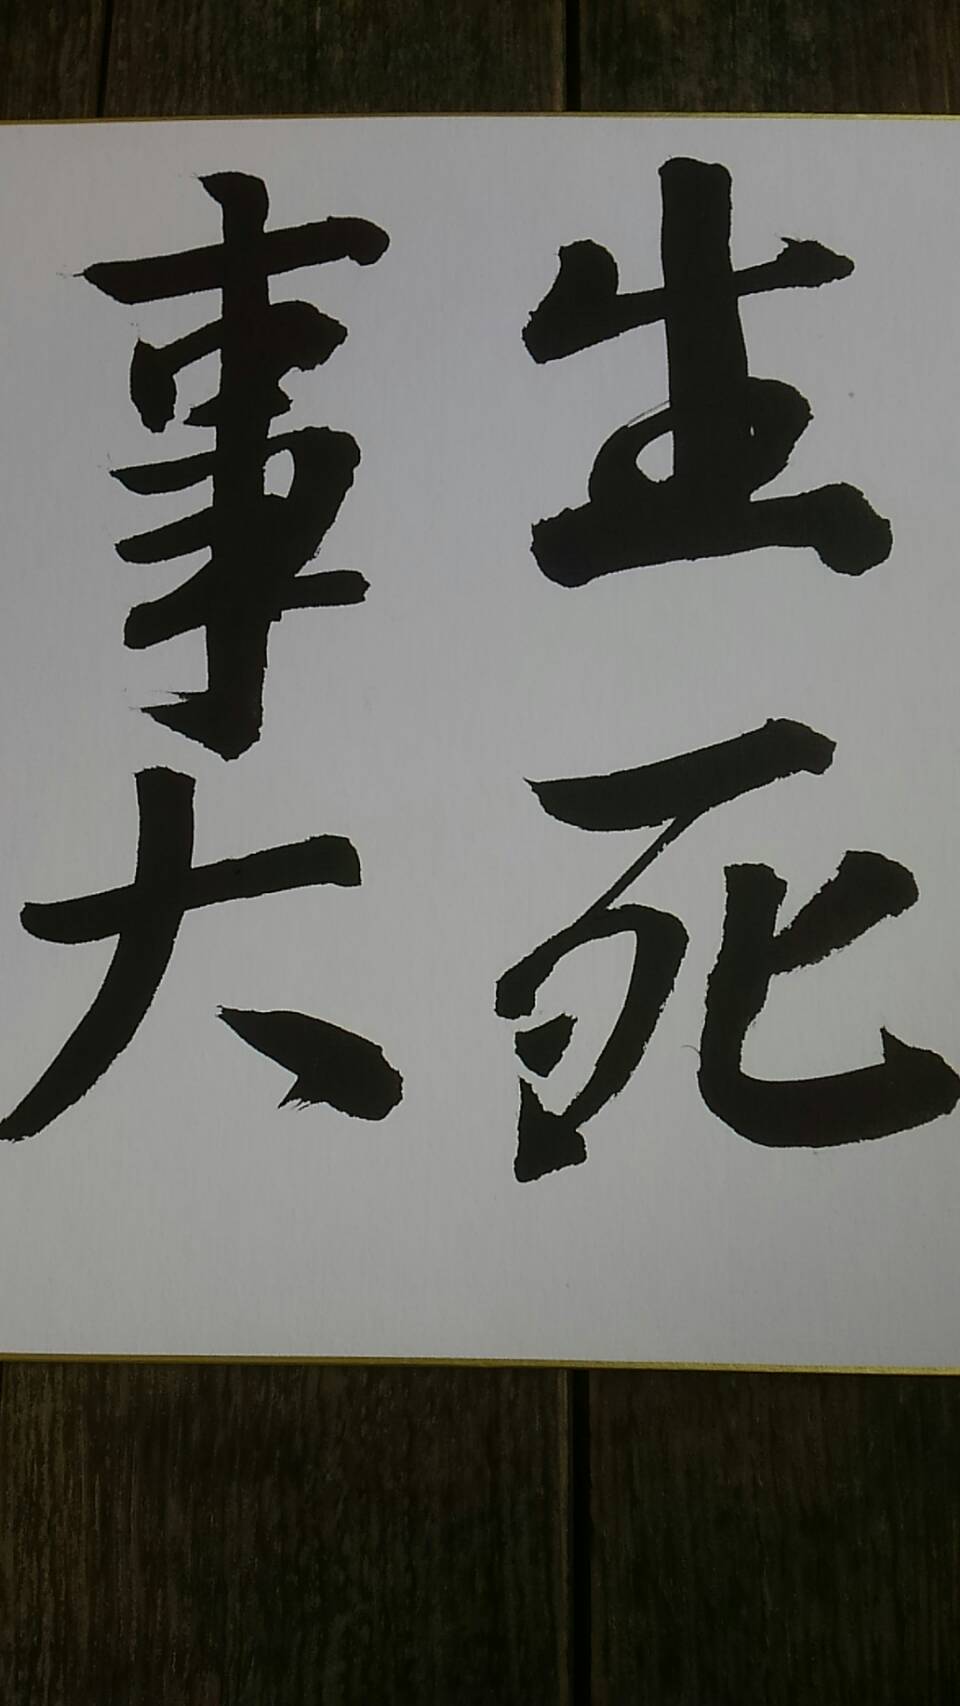 生死
事大